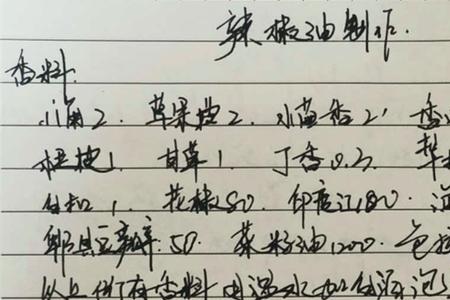 辣椒油制作.
香料
八角2. 草果2. 小茴香2.
桂1. 甘草1. 丁香0.3. 荜
白扣1. 花椒50. 印度江180.
郫县豆瓣 50. 菜籽油1200.
以上所有香料用温水加白酒泡